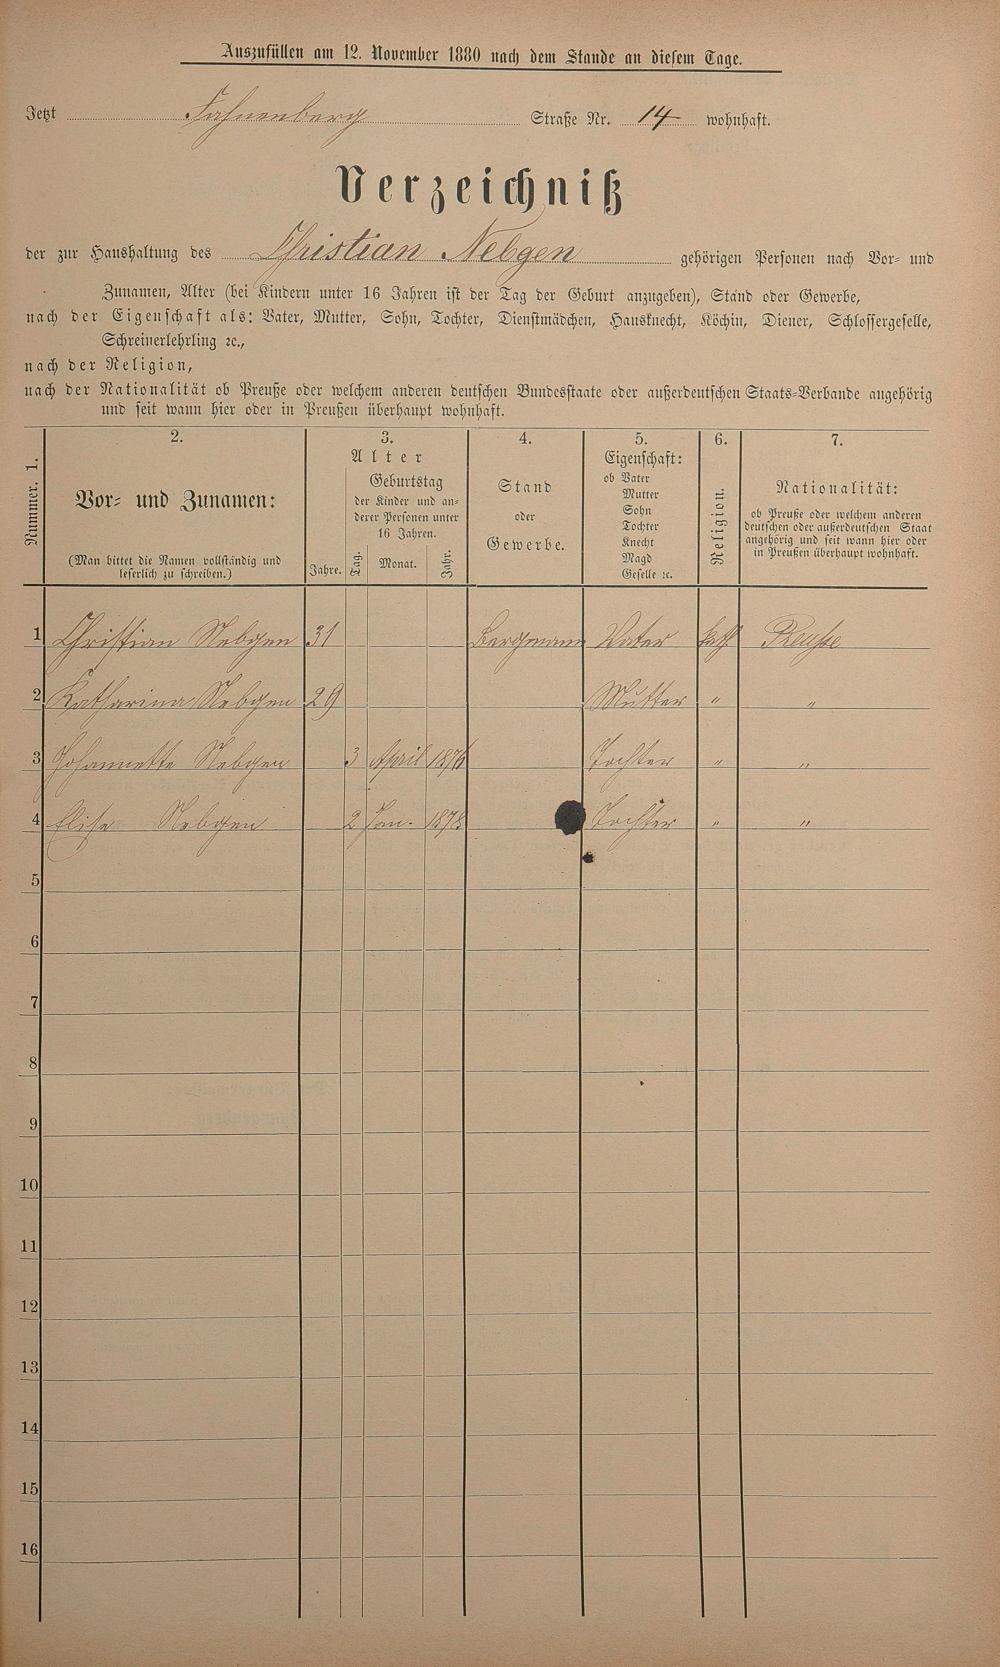 Auszufüllen am 12. November 1880 nach dem Stande an diesem Tage.
Jetzt Fahnenberg Straße Nr. 14 wohnhaft.
Verzeichniß
der zur Haushaltung des Christian Nebgen gehörigen Personen nach Vor- und
Zunamen, Alter (bei Kindern unter 16 Jahren ist der Tag der Geburt anzugeben), Stand oder Gewerbe,
nach der Eigenschaft als: Vater, Mutter, Sohn, Tochter, Dienstmädchen, Hausknecht, Köchin, Diener, Schlossergeselle,
Schreinerlehrling ꝛc.,
nach der Religion,
nach der Nationalität ob Preuße oder welchem anderen deutschen Bundesstaate oder außerdeutschen Staats-Verbande angehörig
und seit wann hier oder in Preußen überhaupt wohnhaft.
Nummer. 1.
2.
Vor- und Zunamen:
(Man bittet die Namen vollständig und
leserlich zu schreiben.)
3.
Alter
Geburtstag
der Kinder und an-
derer Personen unter
16 Jahren.
Jahre. Tag. Monat. Jahr.
4.
Stand
oder
Gewerbe.
5.
Eigenschaft:
ob Vater
Mutter
Sohn
Tochter
Knecht
Magd
Geselle ꝛc.
6.
Religion.
7.
Nationalität:
ob Preuße oder welchem anderen
deutschen oder außerdeutschen Staat
angehörig und seit wann hier oder
in Preußen überhaupt wohnhaft.
1 Christian Nebgen 31 Bergmann Vater kath. Preuße
2 Katharina Nebgen 29 Mutter " "
3 Johannette Nebgen 3 April 1876 Tochter " "
4 Elise Nebgen 2 Jan. 1878 Tochter " "
5
6
7
8
9
10
11
12
13
14
15
16